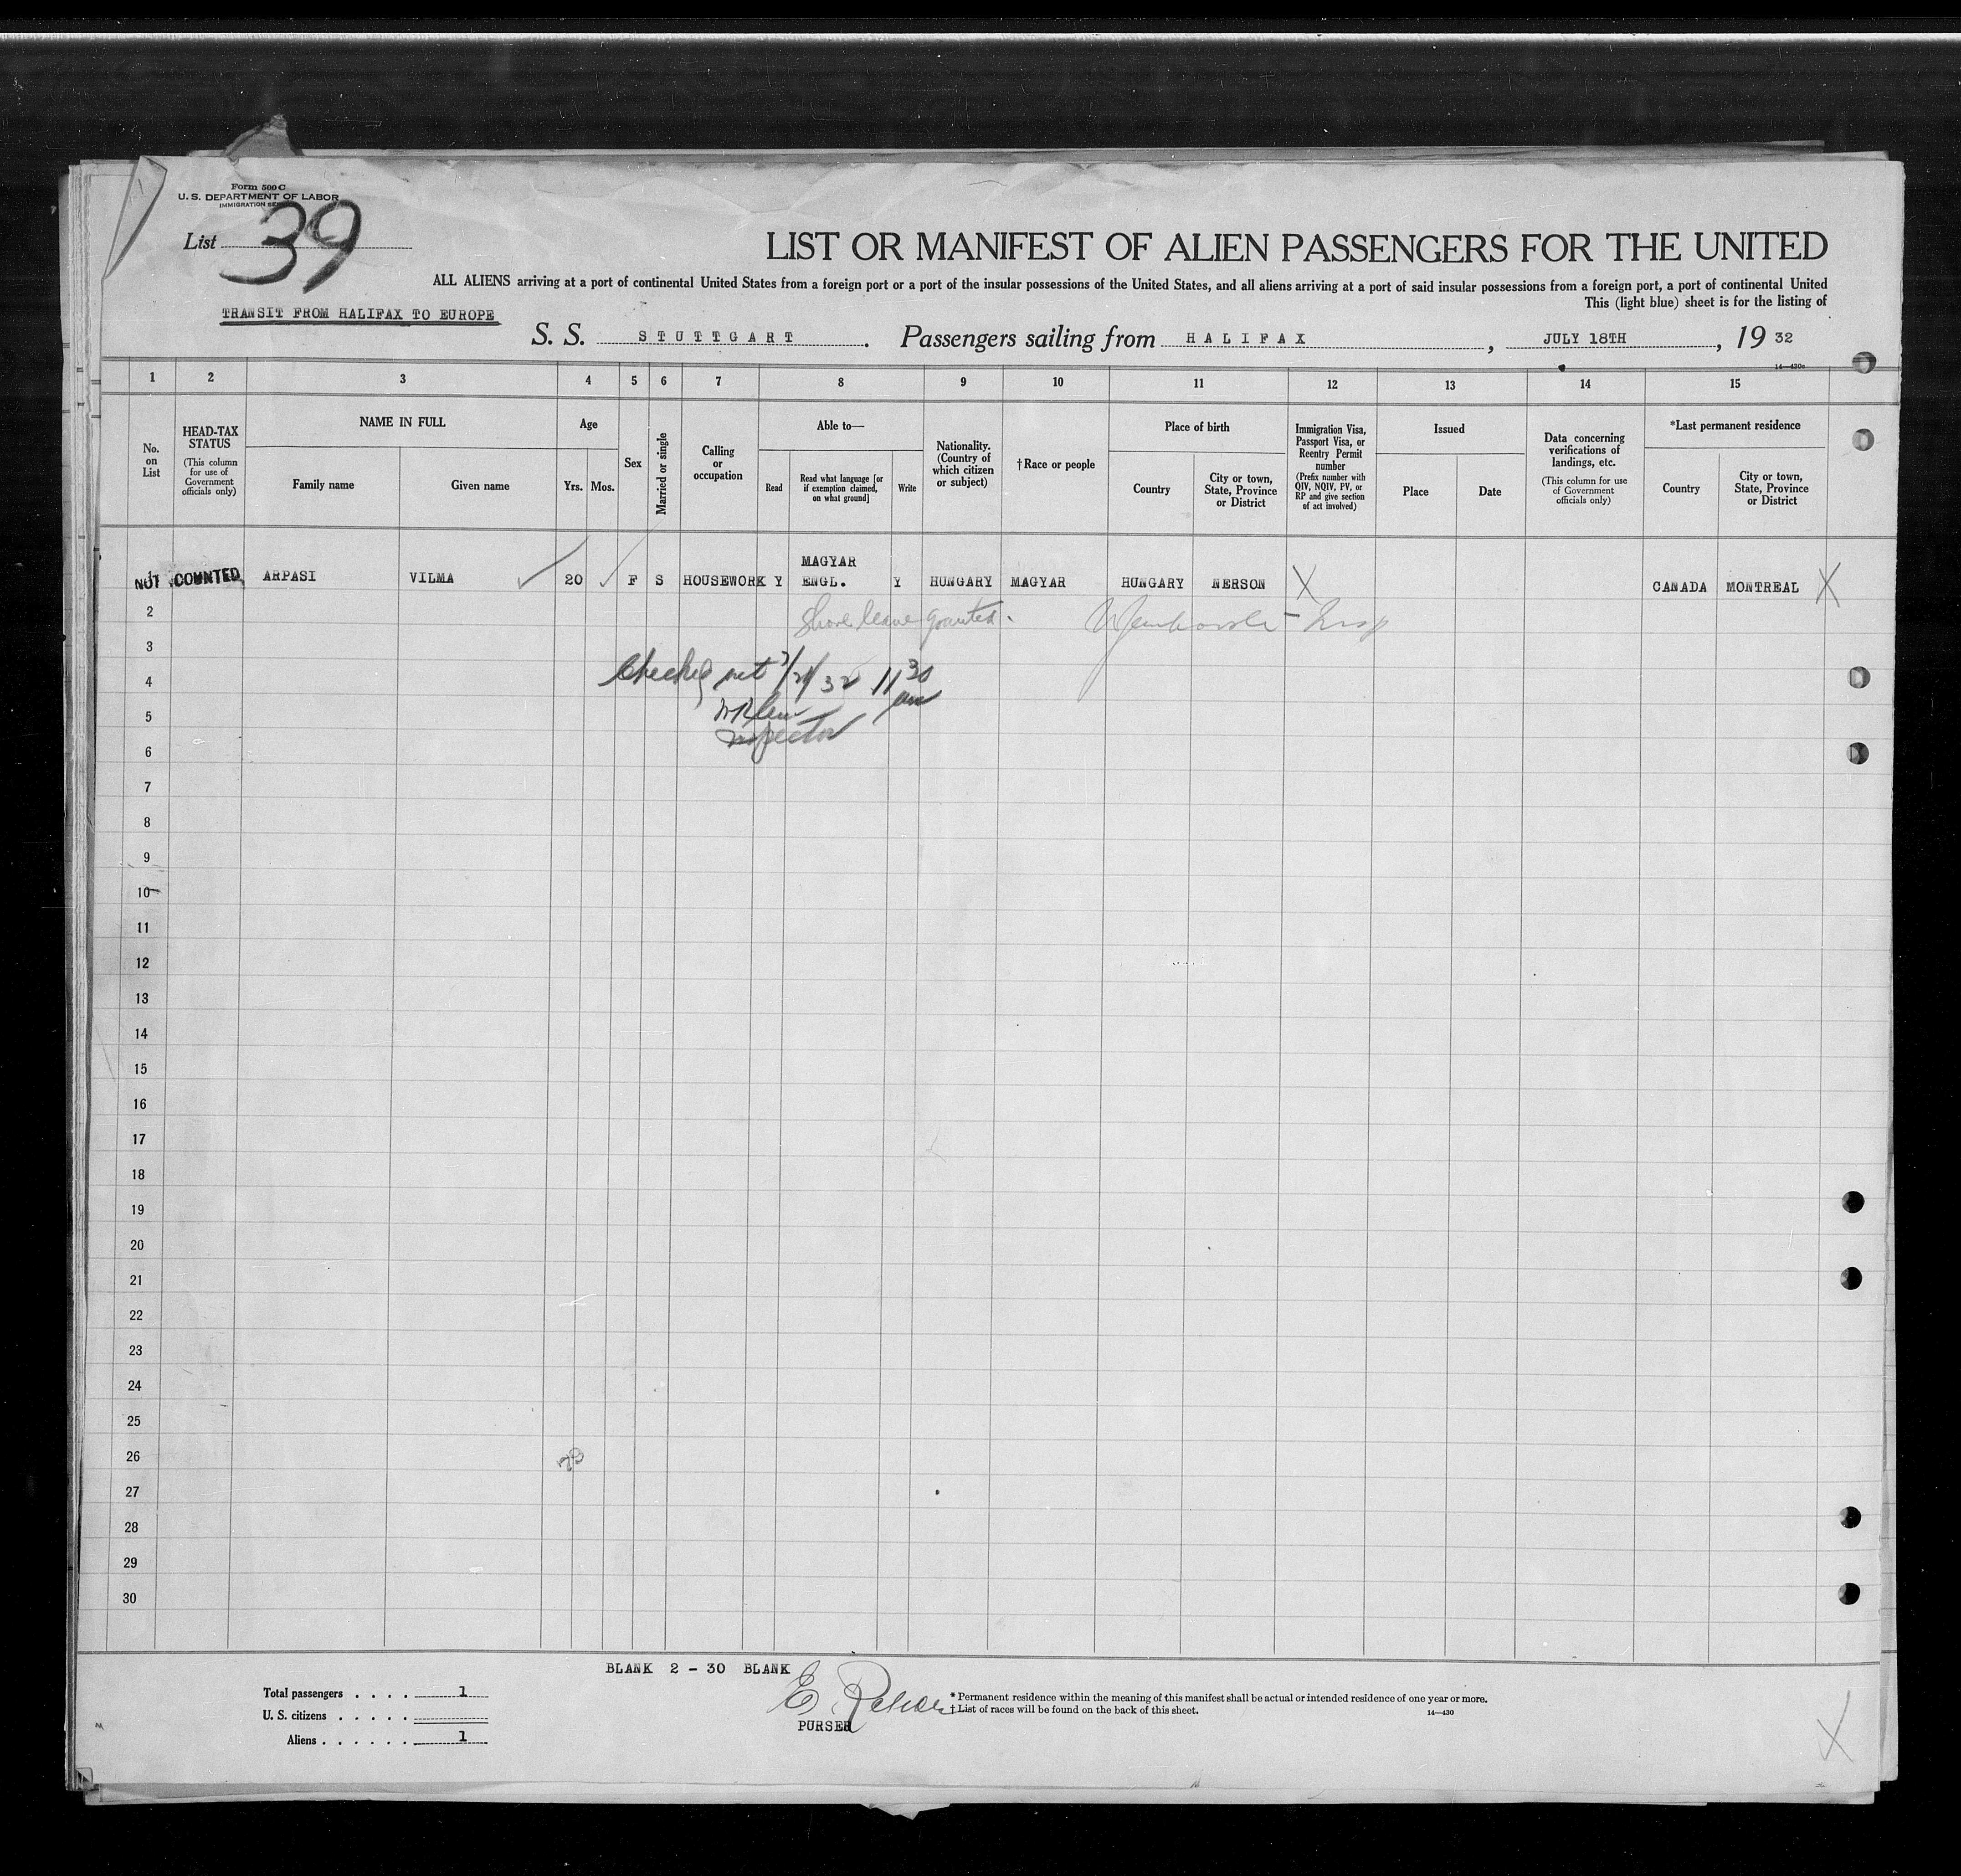 Form 500 C
U. S. DEPARTMENT OF LABOR
IMMIGRATION
List 39
LIST OR MANIFEST OF ALIEN PASSENGERS FOR THE UNITED
ALL ALIENS arriving at a port of continental United States from a foreign port or a port of the insular possessions of the United States, and all aliens arriving at a port of said insular possessions from a foreign port, a port of continental United
This (light blue) sheet is for the listing of
TRANSIT FROM HALIFAX TO EUROPE
S. S. STUTTGART. Passengers sailing from HALIFAX, JULY 18TH, 19 32
14—430c
1 2 3 4 5 6 7 8 9 10 11 12 13 14 15
No. on List
HEAD-TAX STATUS
(This column for use of Government officials only)
NAME IN FULL
Family name
Given name
Age
Yrs. Mos.
Sex
Married or single
Calling or occupation
Able to—
Read
Read what language [or if exemption claimed, on what ground]
Write
Nationality. (Country of which citizen or subject)
† Race or people
Place of birth
Country
City or town, State, Province or District
Immigration Visa, Passport Visa, or Reentry Permit number
(Prefix number with QIV, NQIV, PV, or RP and give section of act involved)
Issued
Place
Date
Data concerning verifications of landings, etc.
(This column for use of Government officials only)
*Last permanent residence
Country
City or town, State, Province or District
1 NOT COUNTED ARPASI VILMA 20 F S HOUSEWORK Y MAGYAR ENGL. Y HUNGARY MAGYAR HUNGARY NERSON X CANADA MONTREAL X
2 Shore leave granted. Insp
3
4 Checked out 7/21/32 11 30 am
5
6 Inspector
7
8
9
10
11
12
13
14
15
16
17
18
19
20
21
22
23
24
25
26
27
28
29
30
BLANK 2 - 30 BLANK
Total passengers . . . . 1
U. S. citizens . . . . .
Aliens . . . . . . 1
E.
PURSER
* Permanent residence within the meaning of this manifest shall be actual or intended residence of one year or more.
† List of races will be found on the back of this sheet.
14—430
X